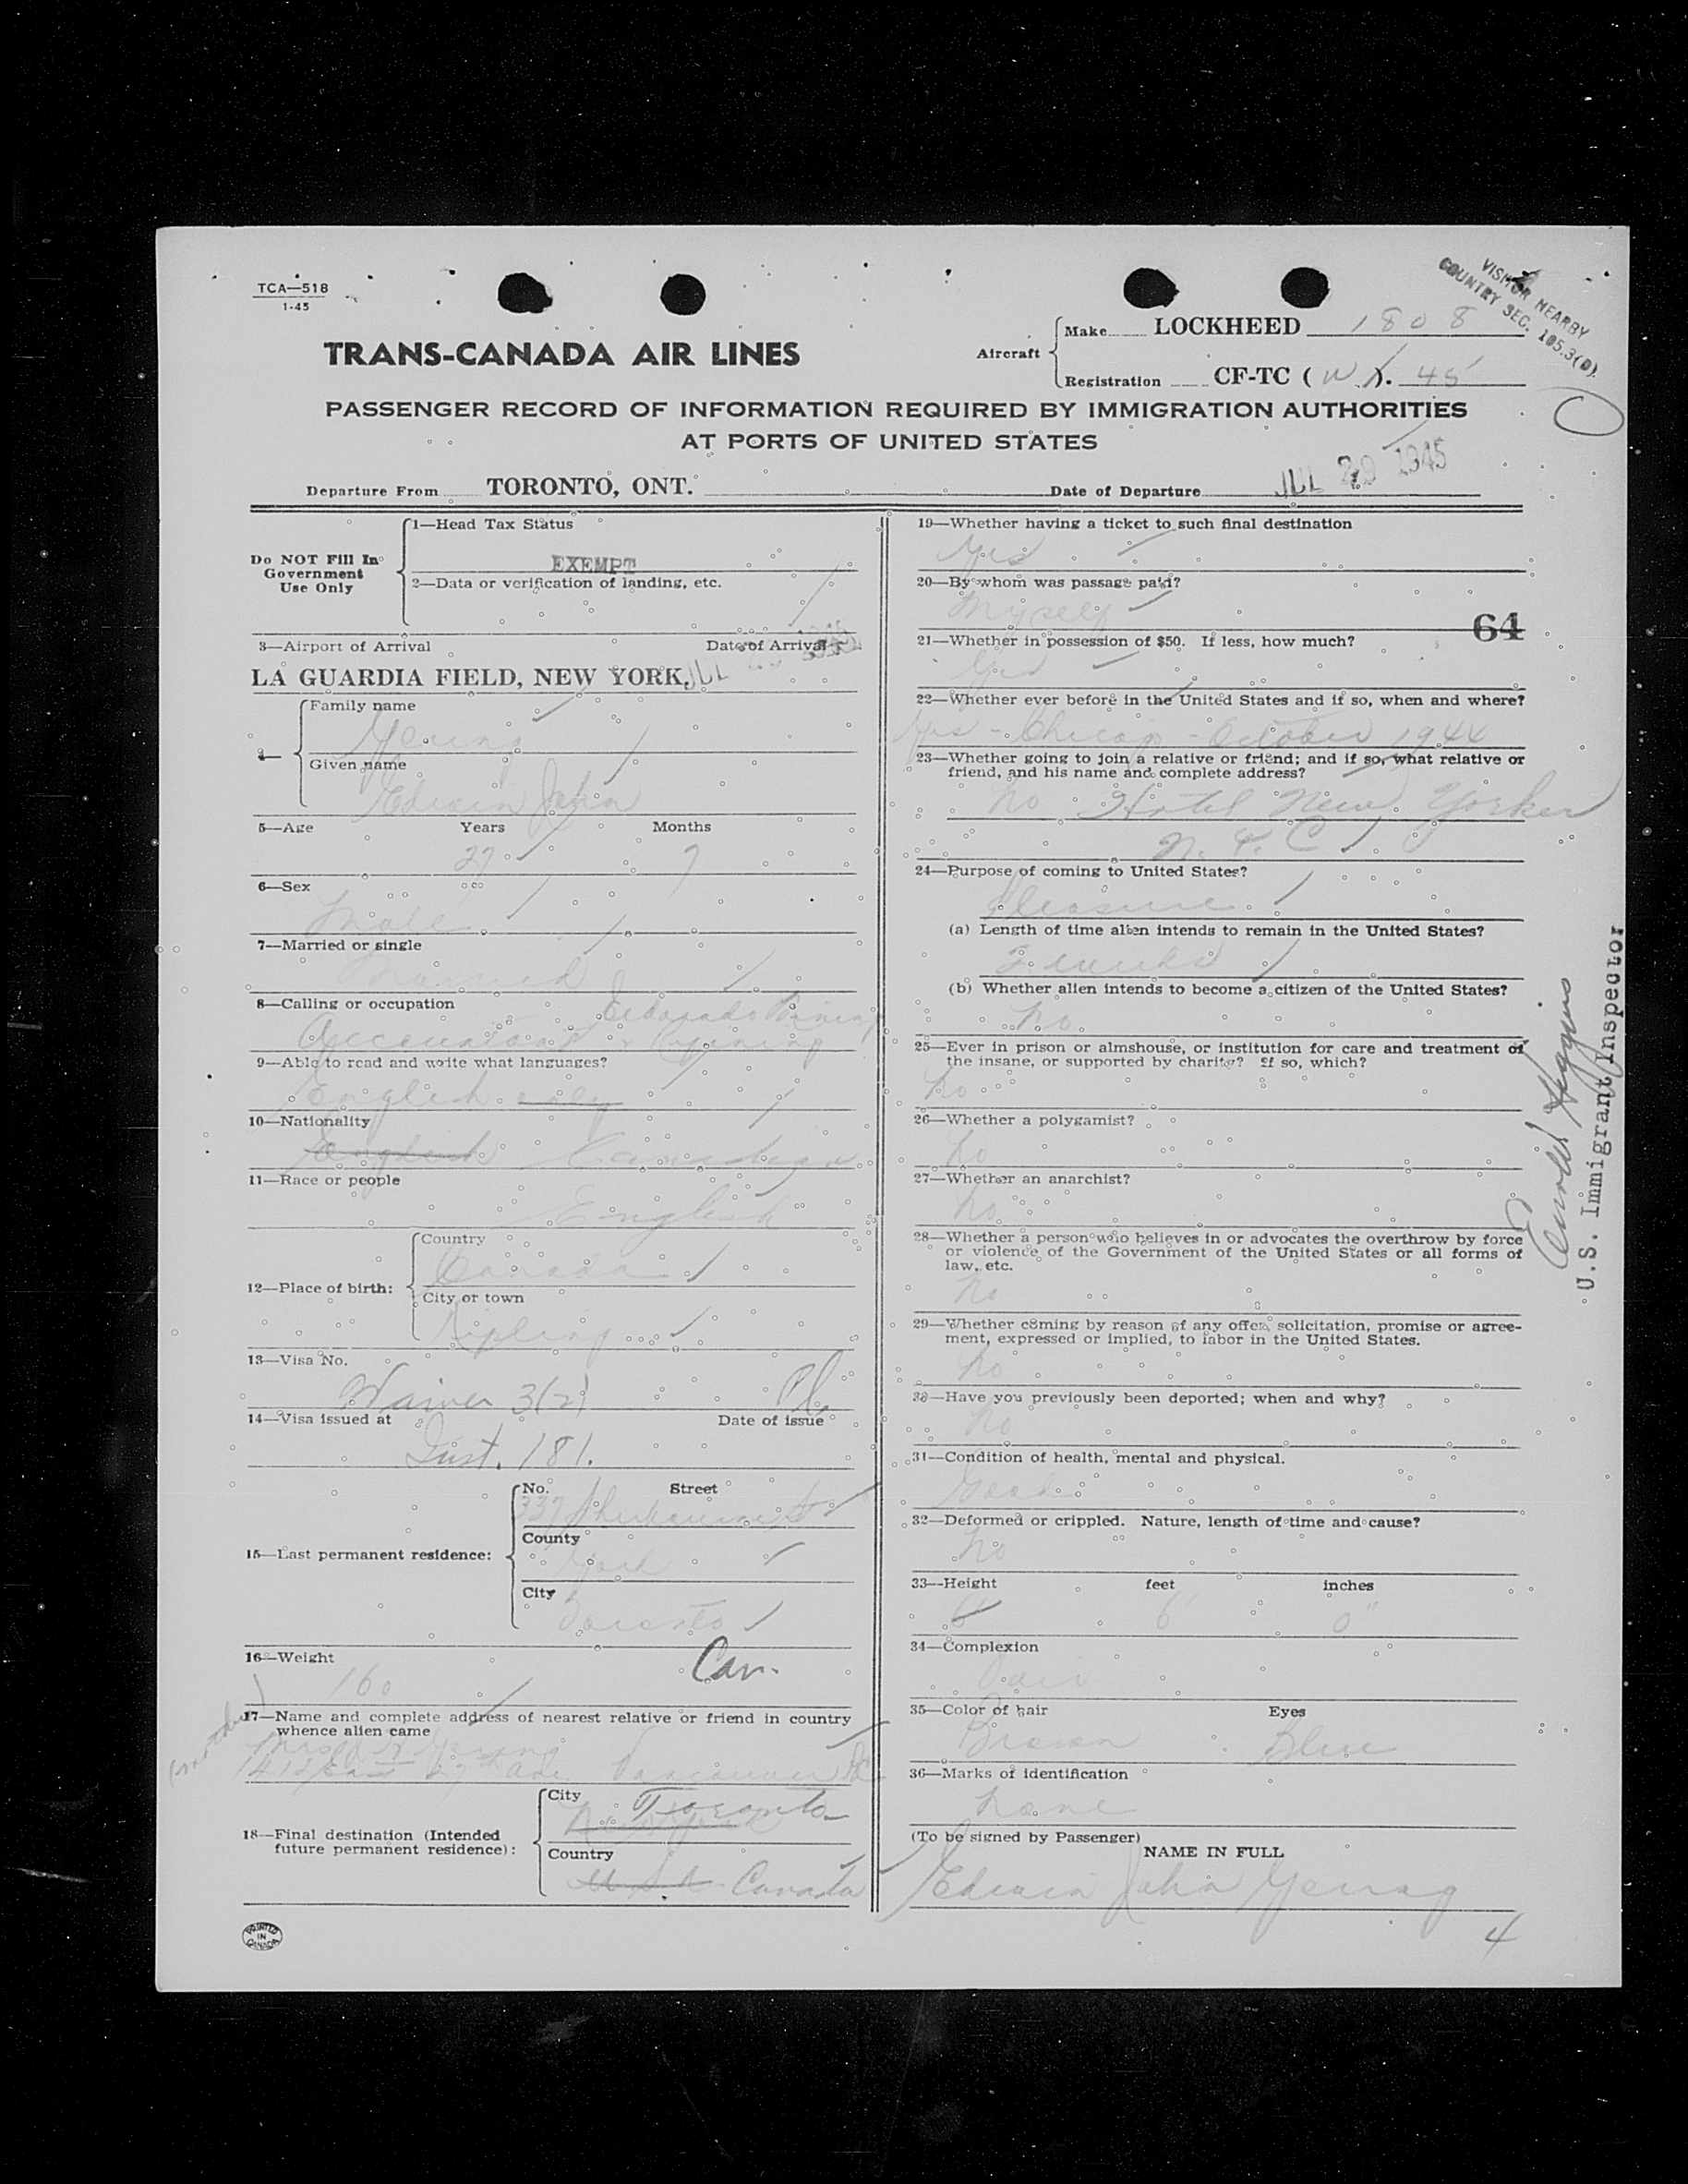 TCA—518
1-45
VISITOR NEARBY
COUNTRY SEC. 105.3(D).
TRANS-CANADA AIR LINES
Aircraft
Make LOCKHEED 1808
Registration CF-TC (W). 45
PASSENGER RECORD OF INFORMATION REQUIRED BY IMMIGRATION AUTHORITIES
AT PORTS OF UNITED STATES
Departure From TORONTO, ONT. Date of Departure JUL 29 1945
Do NOT Fill In
Government
Use Only
1—Head Tax Status
EXEMPT
2—Data or verification of landing, etc.
3—Airport of Arrival Date of Arrival
LA GUARDIA FIELD, NEW YORK, JUL
4—
Family name
Young
Given name
Edwin John
5—Age Years Months
27 7
6—Sex
Male
7—Married or single
Married
8—Calling or occupation
Accountant Eldorado Mining
& Refining
9—Able to read and write what languages?
English only
10—Nationality
English Canadian
11—Race or people
English
12—Place of birth:
Country
Canada
City or town
Kipling
13—Visa No.
Waiver 3(2)
14—Visa issued at Date of issue
Inst. 181.
15—Last permanent residence:
No. Street
337 Sherbourne St
County
York
City
Toronto
16—Weight
160 Can.
17—Name and complete address of nearest relative or friend in country
whence alien came
Young
27th Ave Vancouver BC
18—Final destination (Intended
future permanent residence):
City
New York Toronto
Country
U.S.A. Canada
PRINTED
IN
CANADA
19—Whether having a ticket to such final destination
Yes
20—By whom was passage paid?
Myself
64
21—Whether in possession of $50. If less, how much?
Yes
22—Whether ever before in the United States and if so, when and where?
Yes - Chicago - October 1944
23—Whether going to join a relative or friend; and if so, what relative or
friend, and his name and complete address?
No Hotel New Yorker
N.Y.C
24—Purpose of coming to United States?
Pleasure
(a) Length of time alien intends to remain in the United States?
2 weeks
(b) Whether alien intends to become a citizen of the United States?
No.
25—Ever in prison or almshouse, or institution for care and treatment of
the insane, or supported by charity? If so, which?
No
26—Whether a polygamist?
No
27—Whether an anarchist?
No
28—Whether a person who believes in or advocates the overthrow by force
or violence of the Government of the United States or all forms of
law, etc.
No
29—Whether coming by reason of any offer, solicitation, promise or agree-
ment, expressed or implied, to labor in the United States.
No
30—Have you previously been deported; when and why?
No
31—Condition of health, mental and physical.
Good
32—Deformed or crippled. Nature, length of time and cause?
No
33—Height feet inches
6' 6' 0"
34—Complexion
Fair
35—Color of hair Eyes
Brown Blue
36—Marks of identification
None
(To be signed by Passenger)
NAME IN FULL
Edwin John Young
4
U.S. Immigrant Inspector